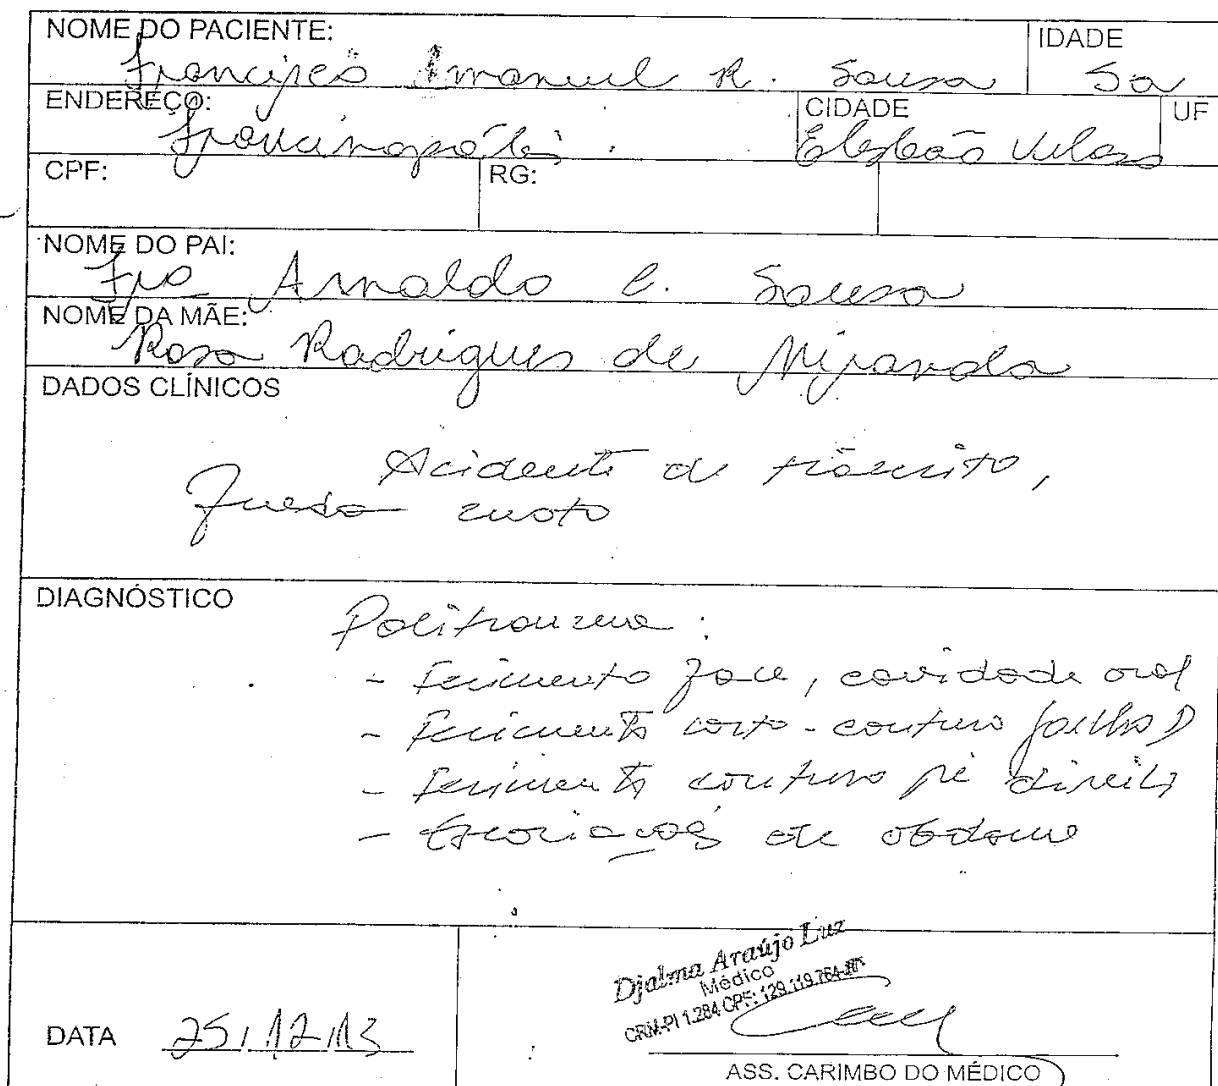 NOME DO PACIENTE: IDADE
Francisco Emanuel R. Sousa 5a
ENDEREÇO: CIDADE UF
Francinopólis. Elesbão Veloso
CPF: RG:
NOME DO PAI:
Fco Arnaldo C. Sousa
NOME DA MÃE:
Rosa Rodrigues de Miranda
DADOS CLÍNICOS
Acidente de trânsito,
Queda moto
DIAGNÓSTICO
Politrauma:
- Ferimento face, cavidade oral
- Ferimento corto-contuso joelho D
- Ferimento contuso pé direito
- Escoriações de abdome
Djalma Araújo Luz
Médico
CRM-PI 1.284 CPF: 129.119.764-
DATA 25/12/13
ASS. CARIMBO DO MÉDICO